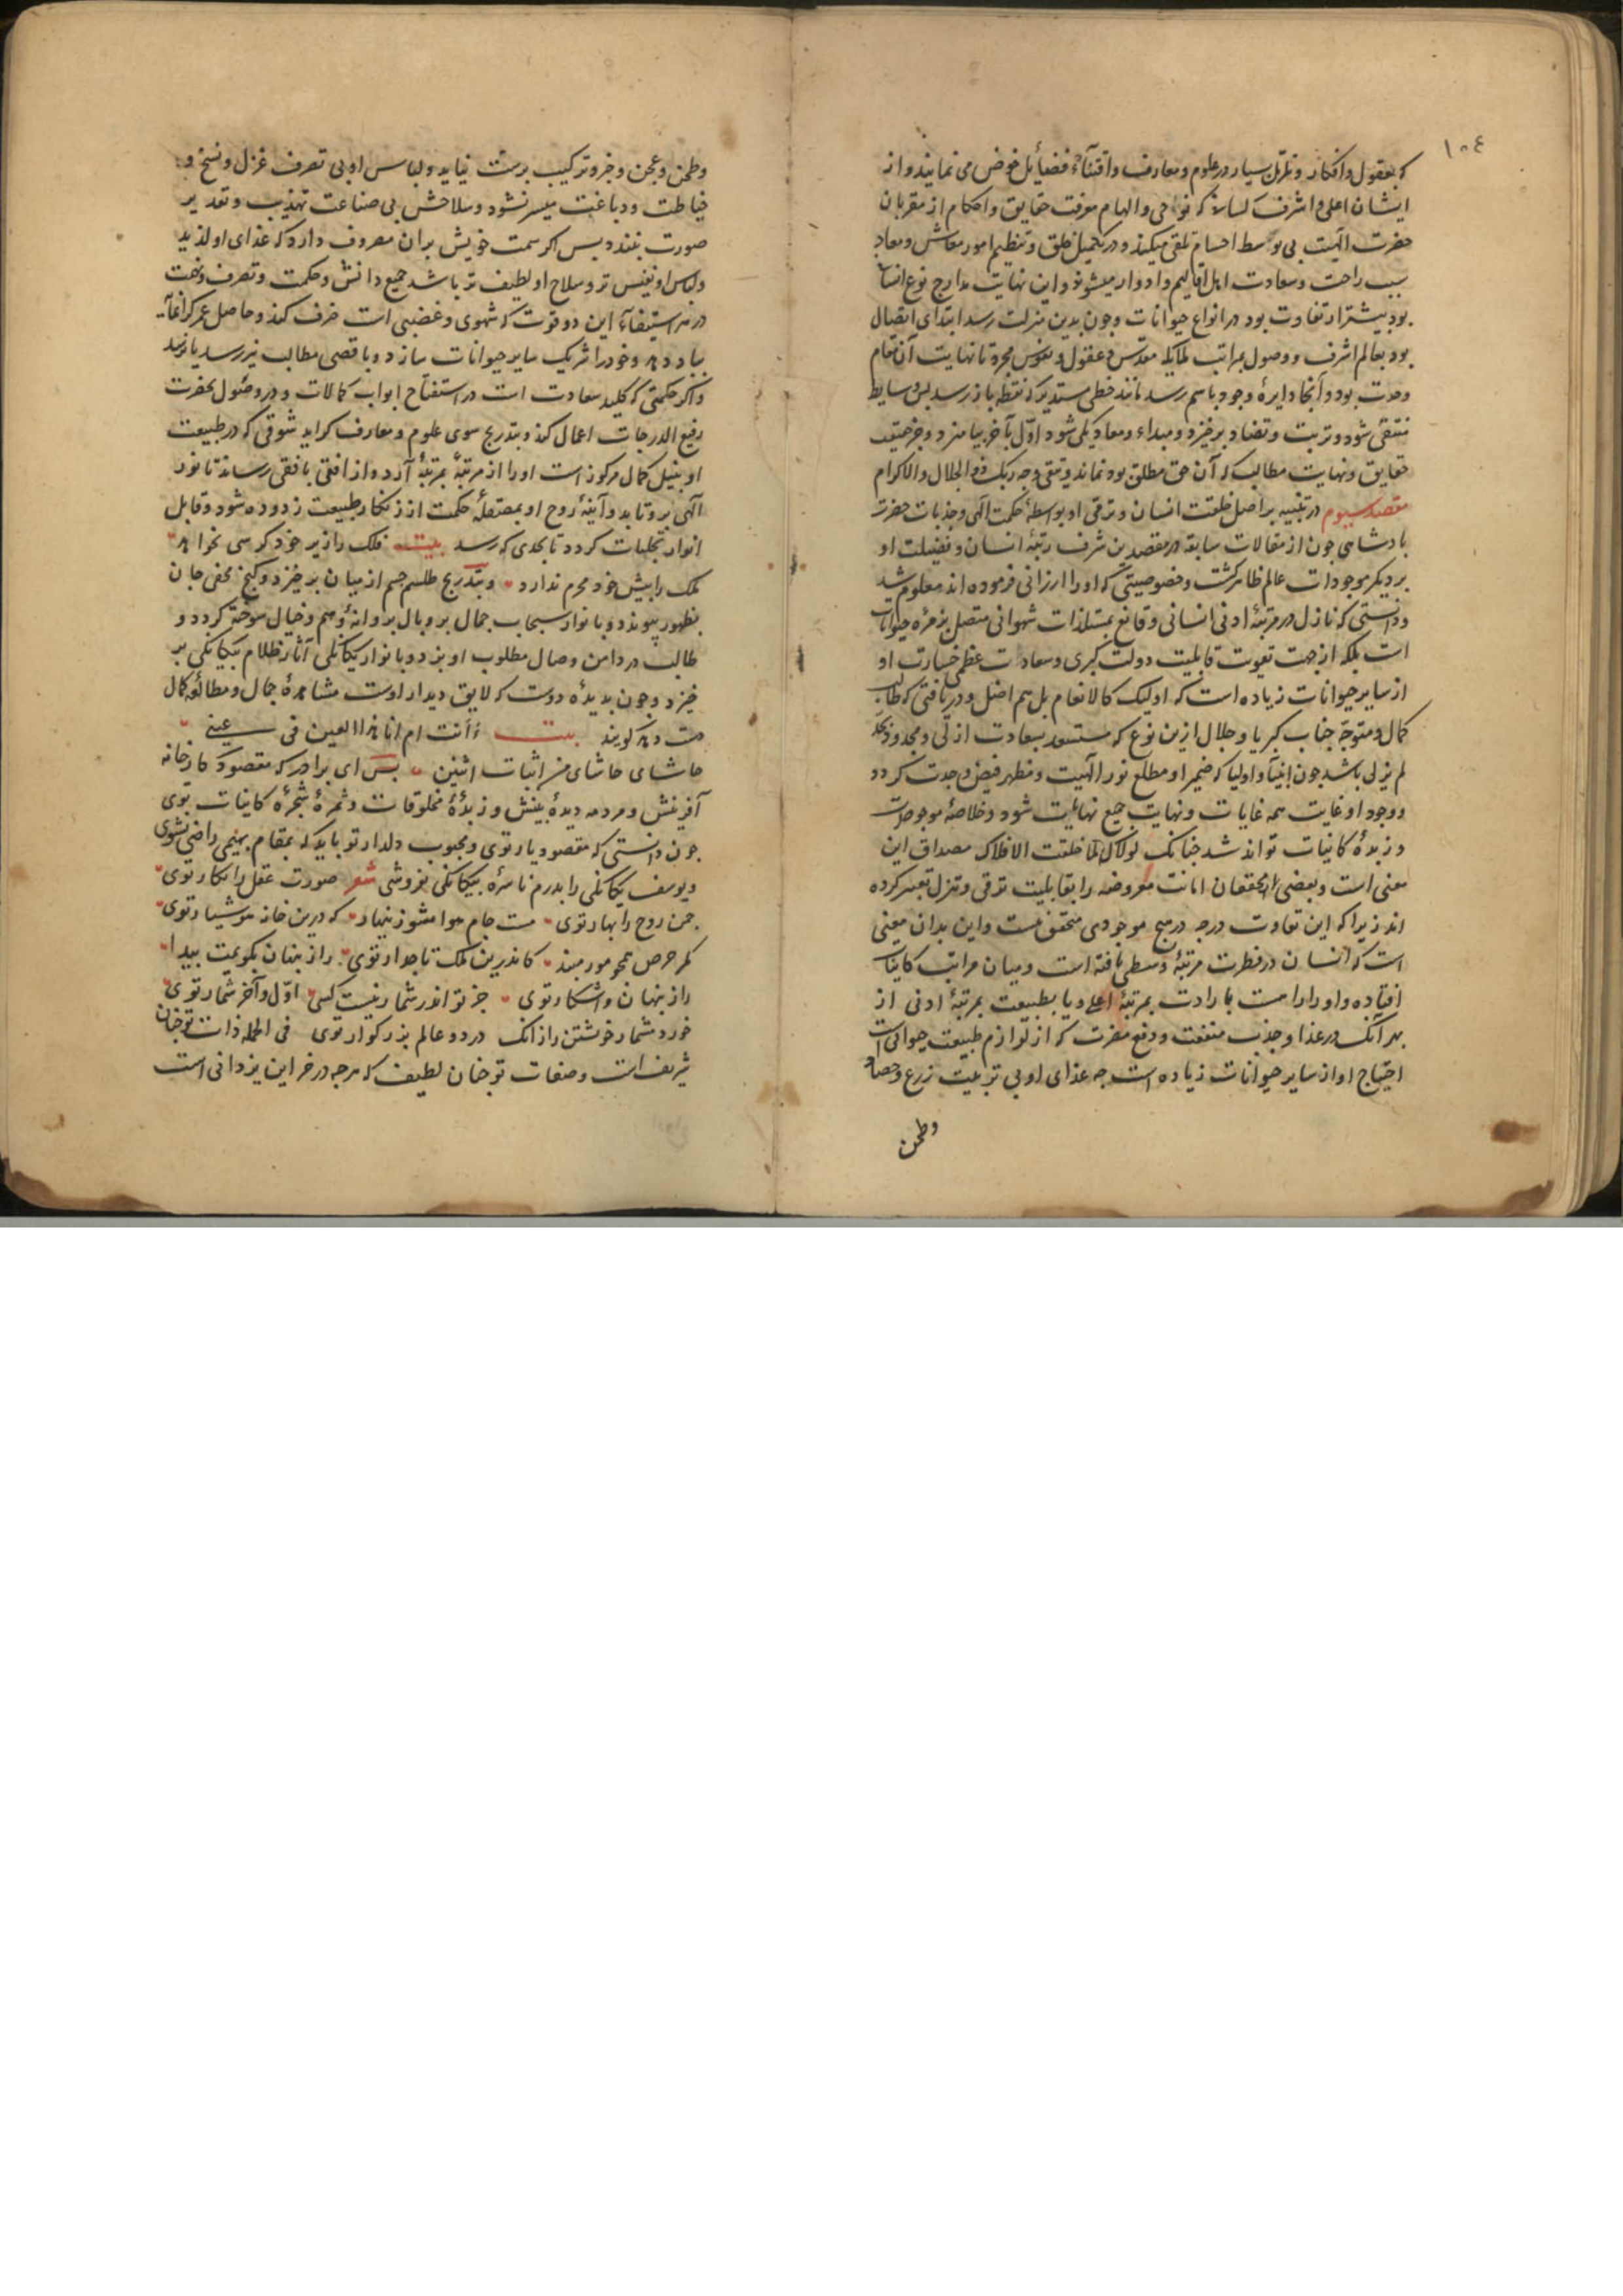 ١٠٤
که بعقول و افکار و تأمل بسیار در علوم و معارف و اقتناء فضایل خوض می نمایند و از
ایشان اعلی و اشرف کسانی که بوحی و الهام معرفت حقایق و احکام از مقربان
حضرت الهیت بی توسط اجسام تلقی میکنند و در تکمیل خلق و تنظیم امور معاش و معاد
سبب راحت و سعادت اهل اقالیم و ادوار میشوند و این نهایت مدارج نوع انسانی
بود بیشتر از تفاوت بود در انواع حیوانات و چون بدین منزلت رسد ابتدای اتصال
بود بعالم اشرف و وصول بمراتب ملایکه مقدس و عقول و نفوس مجرد تا نهایت آن مقام
وحدت بود و آنجا دایرهٔ وجود باهم رسد مانند خطی مستدیر که از نقطه باز رسد پس وسایط
منتفی شود و ترتب و تضاد برخیزد و مبداء و معاد یکی شود اوّل بآخر بیامیزد و جز حقیقت
حقایق و نهایت مطالب که آن حق مطلق بود نماند و یبقی وجه ربک ذو الجلال والاکرام
مقصد سیوم در تنبیه بر اصل خلقت انسان و ترقی او بواسطهٔ حکمت الهی و جذبات حضرت
پادشاهی چون از مقالات سابقه در مقصد من شرف رتبهٔ انسان و فضیلت او
بر دیگر موجودات عالم ظاهر گشت و خصوصیتی که او را ارزانی فرموده اند معلوم شد
و دانستی که نازل در مرتبهٔ ادنی انسانی و قانع بمستلذات شهوانی متصل بزمرهٔ حیوانات
است بلکه از جهت تفویت قابلیت دولت کبری و سعادت عظمی خسارت او
از سایر حیوانات زیاده است که اولیک کالانعام بل هم اضل و دریافتی که طالب
کمال و متوجّه جناب کبریا و جلال ازین نوع که مستسعد بسعادت ازلی و مجدود بجدّ
لم یزلی باشد چون انبیا و اولیا که ضمیر او مطلع نور الهیت و مظهر فیض وحدت گردد
و وجود او غایت همه غایات و نهایت جمیع نهایات شود و خلاصهٔ موجودات
و زبدهٔ کاینات تواند شد چنانک لولاک لما خلقت الافلاک مصداق این
معنی است و بعضی از محققان امانت معروضه را بقابلیت ترقی و تنزل تعبیر کرده
اند زیرا که این تفاوت درجه در هیچ موجودی متحقق نیست و این بدان معنی
است که انسان در فطرت مرتبهٔ وسطی یافته است و میان مراتب کاینات
افتاده و او را راهست بارادت بمرتبهٔ اعلی و یا بطبیعت بمرتبهٔ ادنی از
بهر آنک در غذا و جذب منفعت و دفع مضرت که از لوازم طبیعت حیوانی است
احتیاج او از سایر حیوانات زیاده است چه غذای او بی تربیت زرع و حصاد
وطحن
وطحن و عجن و خبز و ترکیب بدست نیاید و لباس او بی تصرف غزل و نسج و
خیاطت و دباغت میسر نشود و سلاحش بی صناعت تهذیب و تقدیر
صورت نبندد پس اگر همت خویش بران مصروف دارد که غذای او لذیذ
و لباس او نفیس تر و سلاح او لطیف تر باشد جمیع دانش و حکمت و تصرف
در استیفاء این دو قوت که شهوی و غضبی است صرف کند و حاصل عمر گرانمایه
بباد دهد و خود را شریک سایر حیوانات سازد و باقصی مطالب نیز رسد یا نرسد
و اگر حکمتی که کلید سعادت است در استفتاح ابواب کمالات و در وصول بحضرت
رفیع الدرجات اعمال کند و بتدریج سوی علوم و معارف گراید شوقی که در طبیعت
او بنیل کمال مرکوز است او را از مرتبهٔ بمرتبهٔ آرد و از افقی بافقی رساند تا نور
الهی برو تابد و آینهٔ روح او بمصقلهٔ حکمت از زنگار طبیعت زدوده شود و قابل
انوار تجلیات گردد تا بحدی که رسد بیت فلک را زیر خود کرسی نخواهد
ملک را پیش خود محرم ندارد و بتدریج طلسم جسم از میان برخیزد و گنج مخفی جان
بظهور پیوندد و با نوار سبحات جمال پر و بال پروانهٔ وهم و خیال سوخته گردد و
طالب در دامن وصال مطلوب آویزد و با نوار یگانگی آثار ظلام بیگانگی بر
خیزد و چون بدیدهٔ دوست که لایق دیدار اوست مشاهدهٔ جمال و مطالعهٔ کمال
دست دهد گویند بیت أ أنت ام انا هذا العین فی عینی
حاشای حاشای من اثبات اثنین پس ای برادر که مقصود کارخانه
آفرینش و مردمه دیدهٔ بینش و زبدهٔ مخلوقات و ثمرهٔ شجرهٔ کاینات توی
چون دانستی که مقصود یار توی و محبوب دلدار تو باید که بمقام بهیمی راضی نشوی
و یوسف یگانگی را بدرم ناسرهٔ بیگانگی نفروشی شعر صورت عقل را نگار توی
چمن روح را بهار توی مست جام هوا مشو زنهار که درین خانه هوشیار توی
کمر حرص همچو مور مبند کاندرین ملک تاجدار توی راز پنهان بگویمت پیدا
راز پنهان و آشکار توی جز تو اندر شمار نیست کسی اوّل و آخر شمار توی
خورد مشمار خویشتن را زانک در دو عالم بزرگوار توی فی الجمله ذات تو چنان
شریف است و صفات تو چنان لطیف که هرچه در خزاین یزدانی است